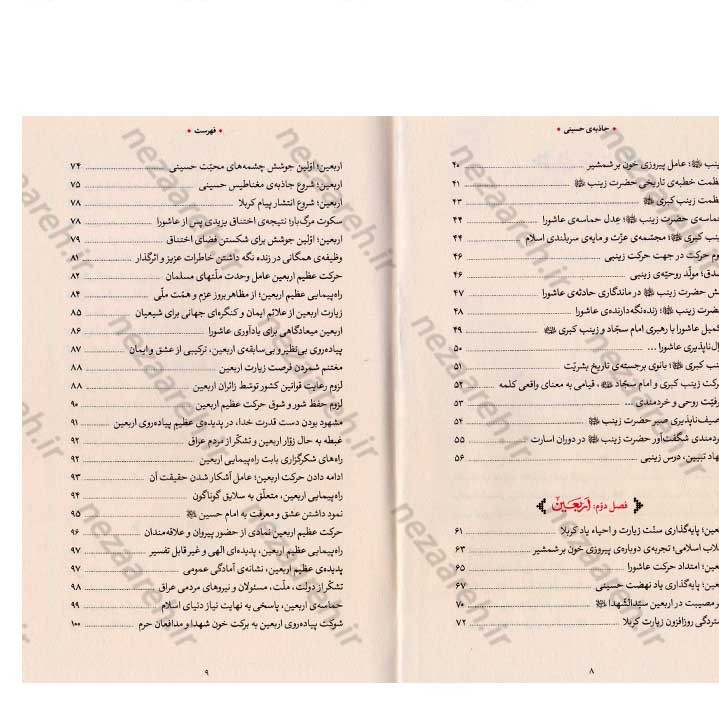 جاذبه‌ی حسینی
زینب ﷺ؛ عامل پیروزی خون بر شمشیر ۴۰
عظمت خطبه‌ی تاریخی حضرت زینب ۴۱
عظمت زینب کبری ۴۳
حماسه‌ی حضرت زینب؛ عِدل حماسه‌ی عاشورا ۴۴
زینب کبری؛ مجسّمه‌ی عزّت و مایه‌ی سربلندی اسلام ۴۴
حرکت در جهت حرکت زینبی ۴۶
مولّد روحیّه‌ی زینبی ۴۶
حضرت زینب در ماندگاری حادثه‌ی عاشورا ۴۷
حضرت زینب؛ زنده‌نگه‌دارنده‌ی عاشورا ۴۸
تکمیل عاشورا با رهبری امام سجّاد و زینب کبری ۴۹
عاشورا ... ۵۰
زینب کبری؛ بانوی برجسته‌ی تاریخ بشریّت ۵۱
حرکت زینب کبری و امام سجّاد، قیامی به معنای واقعی کلمه ۵۲
روحی و خردمندی ۵۳
صبر حضرت زینب ۵۴
خردمندی شگفت‌آور حضرت زینب در دوران اسارت ۵۵
تبیین، درس زینبی ۵۶
فصل دوّم: اربعین
اربعین؛ پایه‌گذاری سنّت زیارت و احیاء یاد کربلا ۶۱
انقلاب اسلامی؛ تجربه‌ی دوباره‌ی پیروزی خون بر شمشیر ۶۳
اربعین؛ امتداد حرکت عاشورا ۶۵
اربعین؛ پایه‌گذاری یاد نهضت حسینی ۶۷
مصیبت در اربعین سیّدالشّهدا ۷۰
روزافزون زیارت کربلا ۷۲
۸
فهرست
اربعین؛ اوّلین جوشش چشمه‌های محبّت حسینی ۷۴
اربعین؛ شروع جاذبه‌ی مغناطیس حسینی ۷۵
اربعین؛ شروع انتشار پیام کربلا ۷۸
سکوت مرگ‌بار؛ نتیجه‌ی اختناق یزیدی پس از عاشورا ۷۸
اربعین؛ اوّلین جوشش برای شکستن فضای اختناق ۷۹
وظیفه‌ی همگانی در زنده نگه داشتن خاطرات عزیز و اثرگذار ۸۱
حرکت عظیم اربعین عامل وحدت ملّتهای مسلمان ۸۲
راه‌پیمایی عظیم اربعین؛ از مظاهر بروز عزم و همّت ملّی ۸۴
زیارت اربعین از علائم ایمان و کنگره‌ای جهانی برای شیعیان ۸۵
اربعین میعادگاهی برای یادآوری عاشورا ۸۶
پیاده‌روی بی‌نظیر و بی‌سابقه‌ی اربعین، ترکیبی از عشق و ایمان ۸۷
مغتنم شمردن فرصت زیارت اربعین ۸۸
لزوم رعایت قوانین کشور توسّط زائران اربعین ۸۸
لزوم حفظ شور و شوق حرکت عظیم اربعین ۹۰
مشهود بودن دست قدرت خدا، در پدیده‌ی عظیم پیاده‌روی اربعین ۹۱
غبطه به حال زوّار اربعین و تشکّر از مردم عراق ۹۲
راه‌های شکرگزاری بابت راه‌پیمایی اربعین ۹۲
ادامه دادن حرکت اربعین؛ عامل آشکار شدن حقیقت آن ۹۳
راه‌پیمایی اربعین، متعلّق به سلایق گوناگون ۹۴
نمود داشتن عشق و معرفت به امام حسین ۹۵
حرکت عظیم اربعین نمادی از حضور پیروان و علاقه‌مندان ۹۶
راه‌پیمایی عظیم اربعین، پدیده‌ای الهی و غیر قابل تفسیر ۹۷
پدیده‌ی اربعین، نشانه‌ی آمادگی عمومی ۹۷
تشکّر از دولت، ملّت، مسئولان و نیروهای مردمی عراق ۹۸
حماسه‌ی اربعین، پاسخی به نهایت نیاز دنیای اسلام ۹۹
شوکت پیاده‌روی اربعین به برکت خون شهدا و مدافعان حرم ۱۰۰
۹
nezaareh.ir